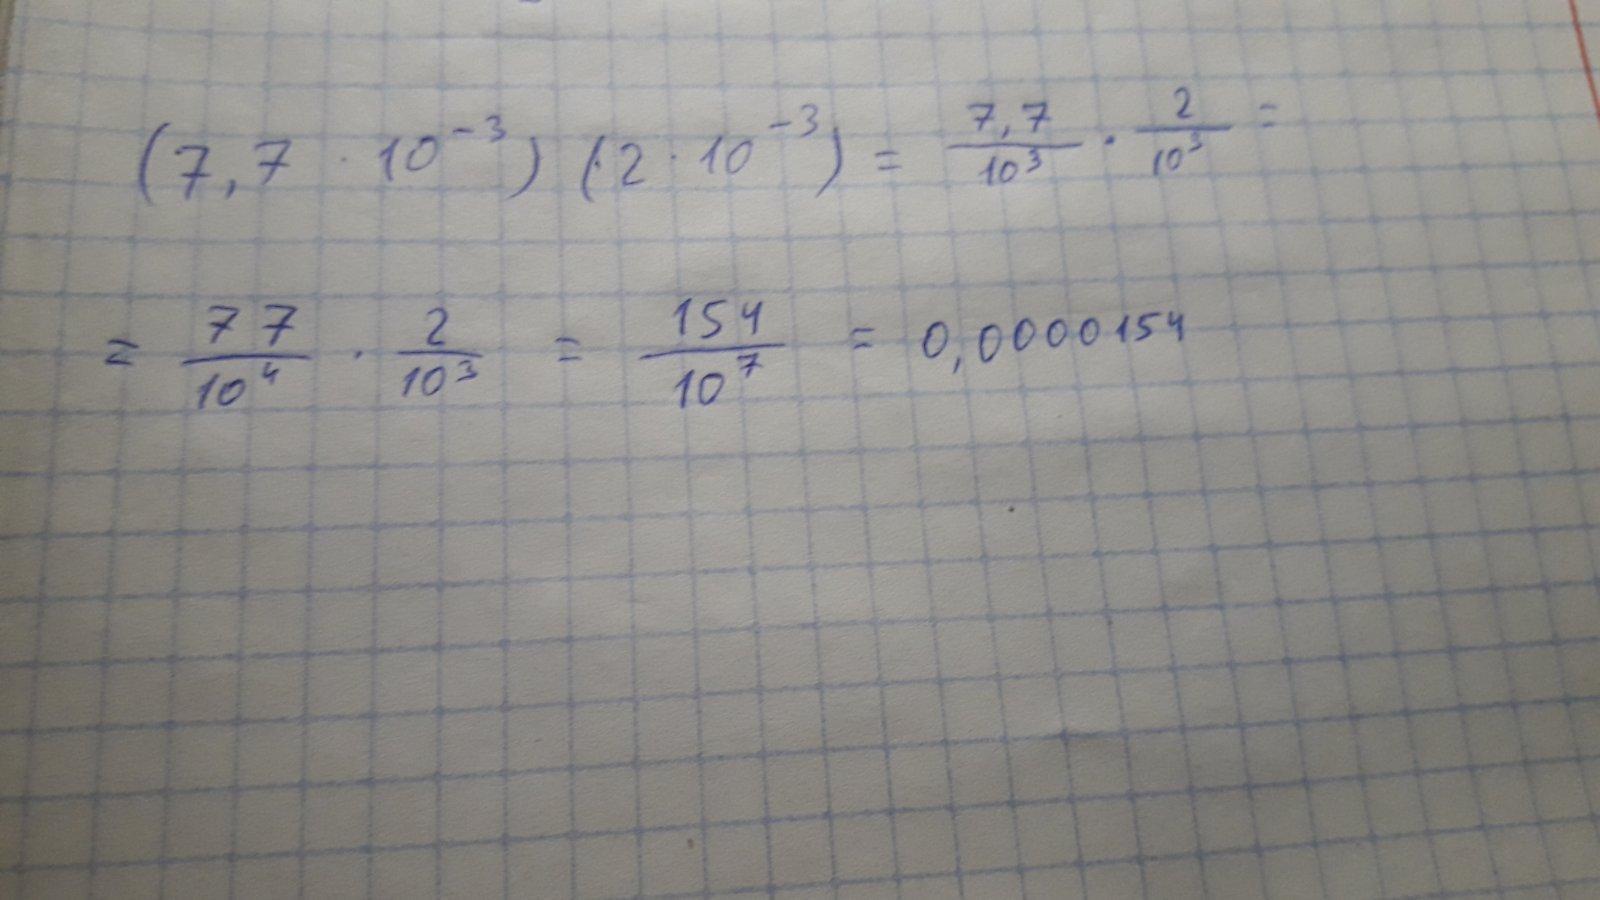 (7,7 · 10⁻³) (2 · 10⁻³) = 7,7/10³ · 2/10³ =
= 77/10⁴ · 2/10³ = 154/10⁷ = 0,0000154